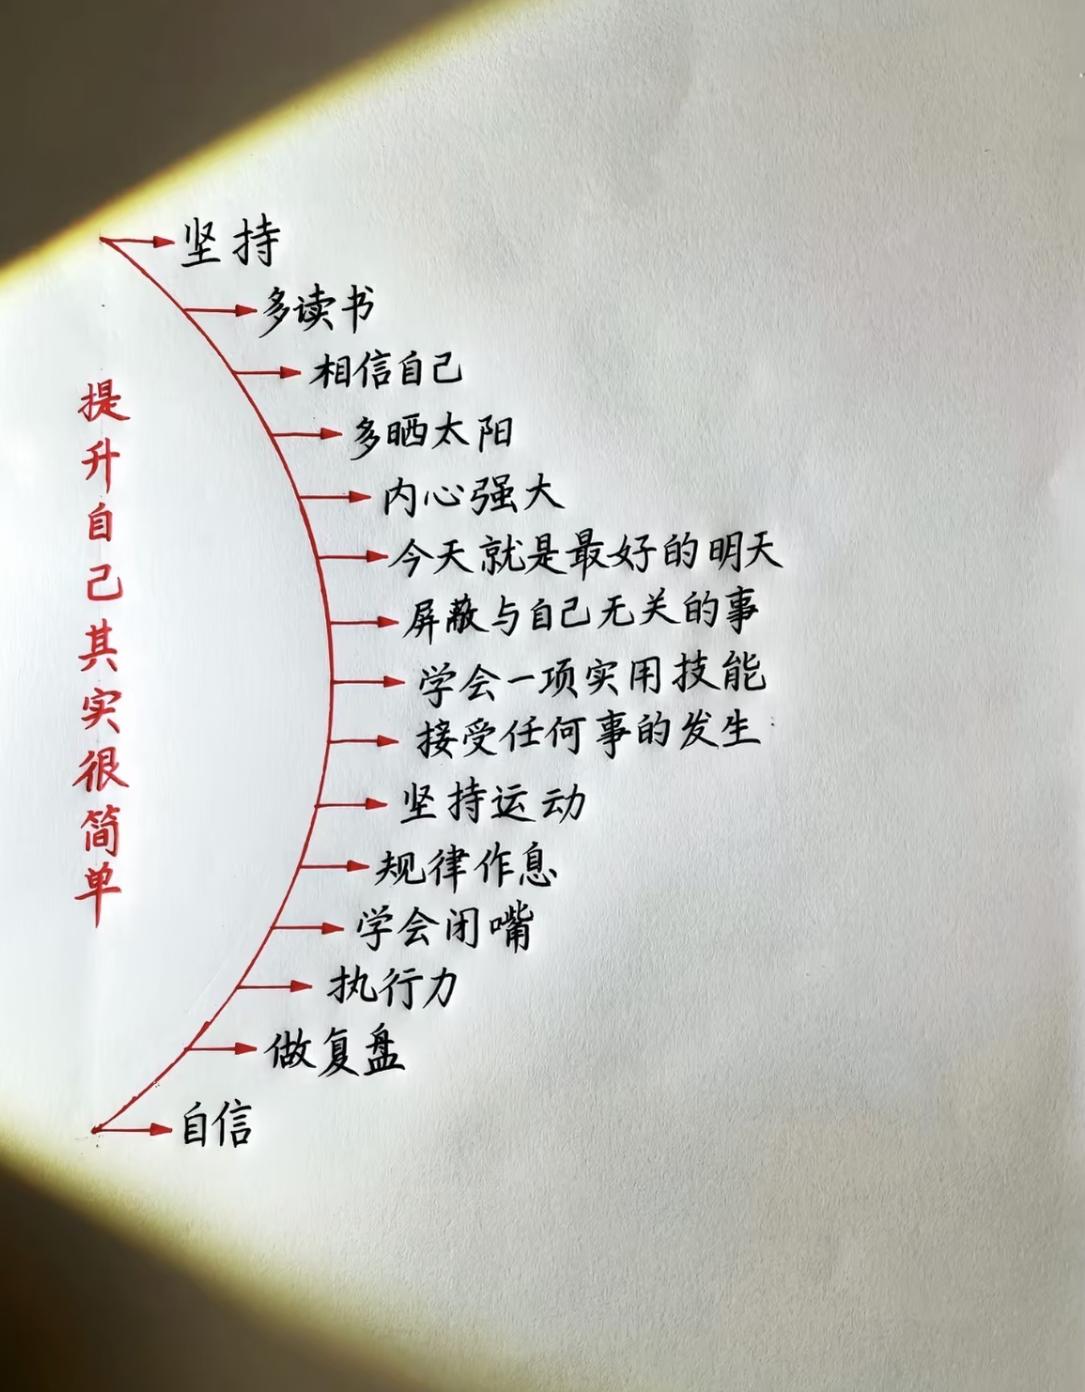 提升自己其实很简单
坚持
多读书
相信自己
多晒太阳
内心强大
今天就是最好的明天
屏蔽与自己无关的事
学会一项实用技能
接受任何事的发生
坚持运动
规律作息
学会闭嘴
执行力
做复盘
自信